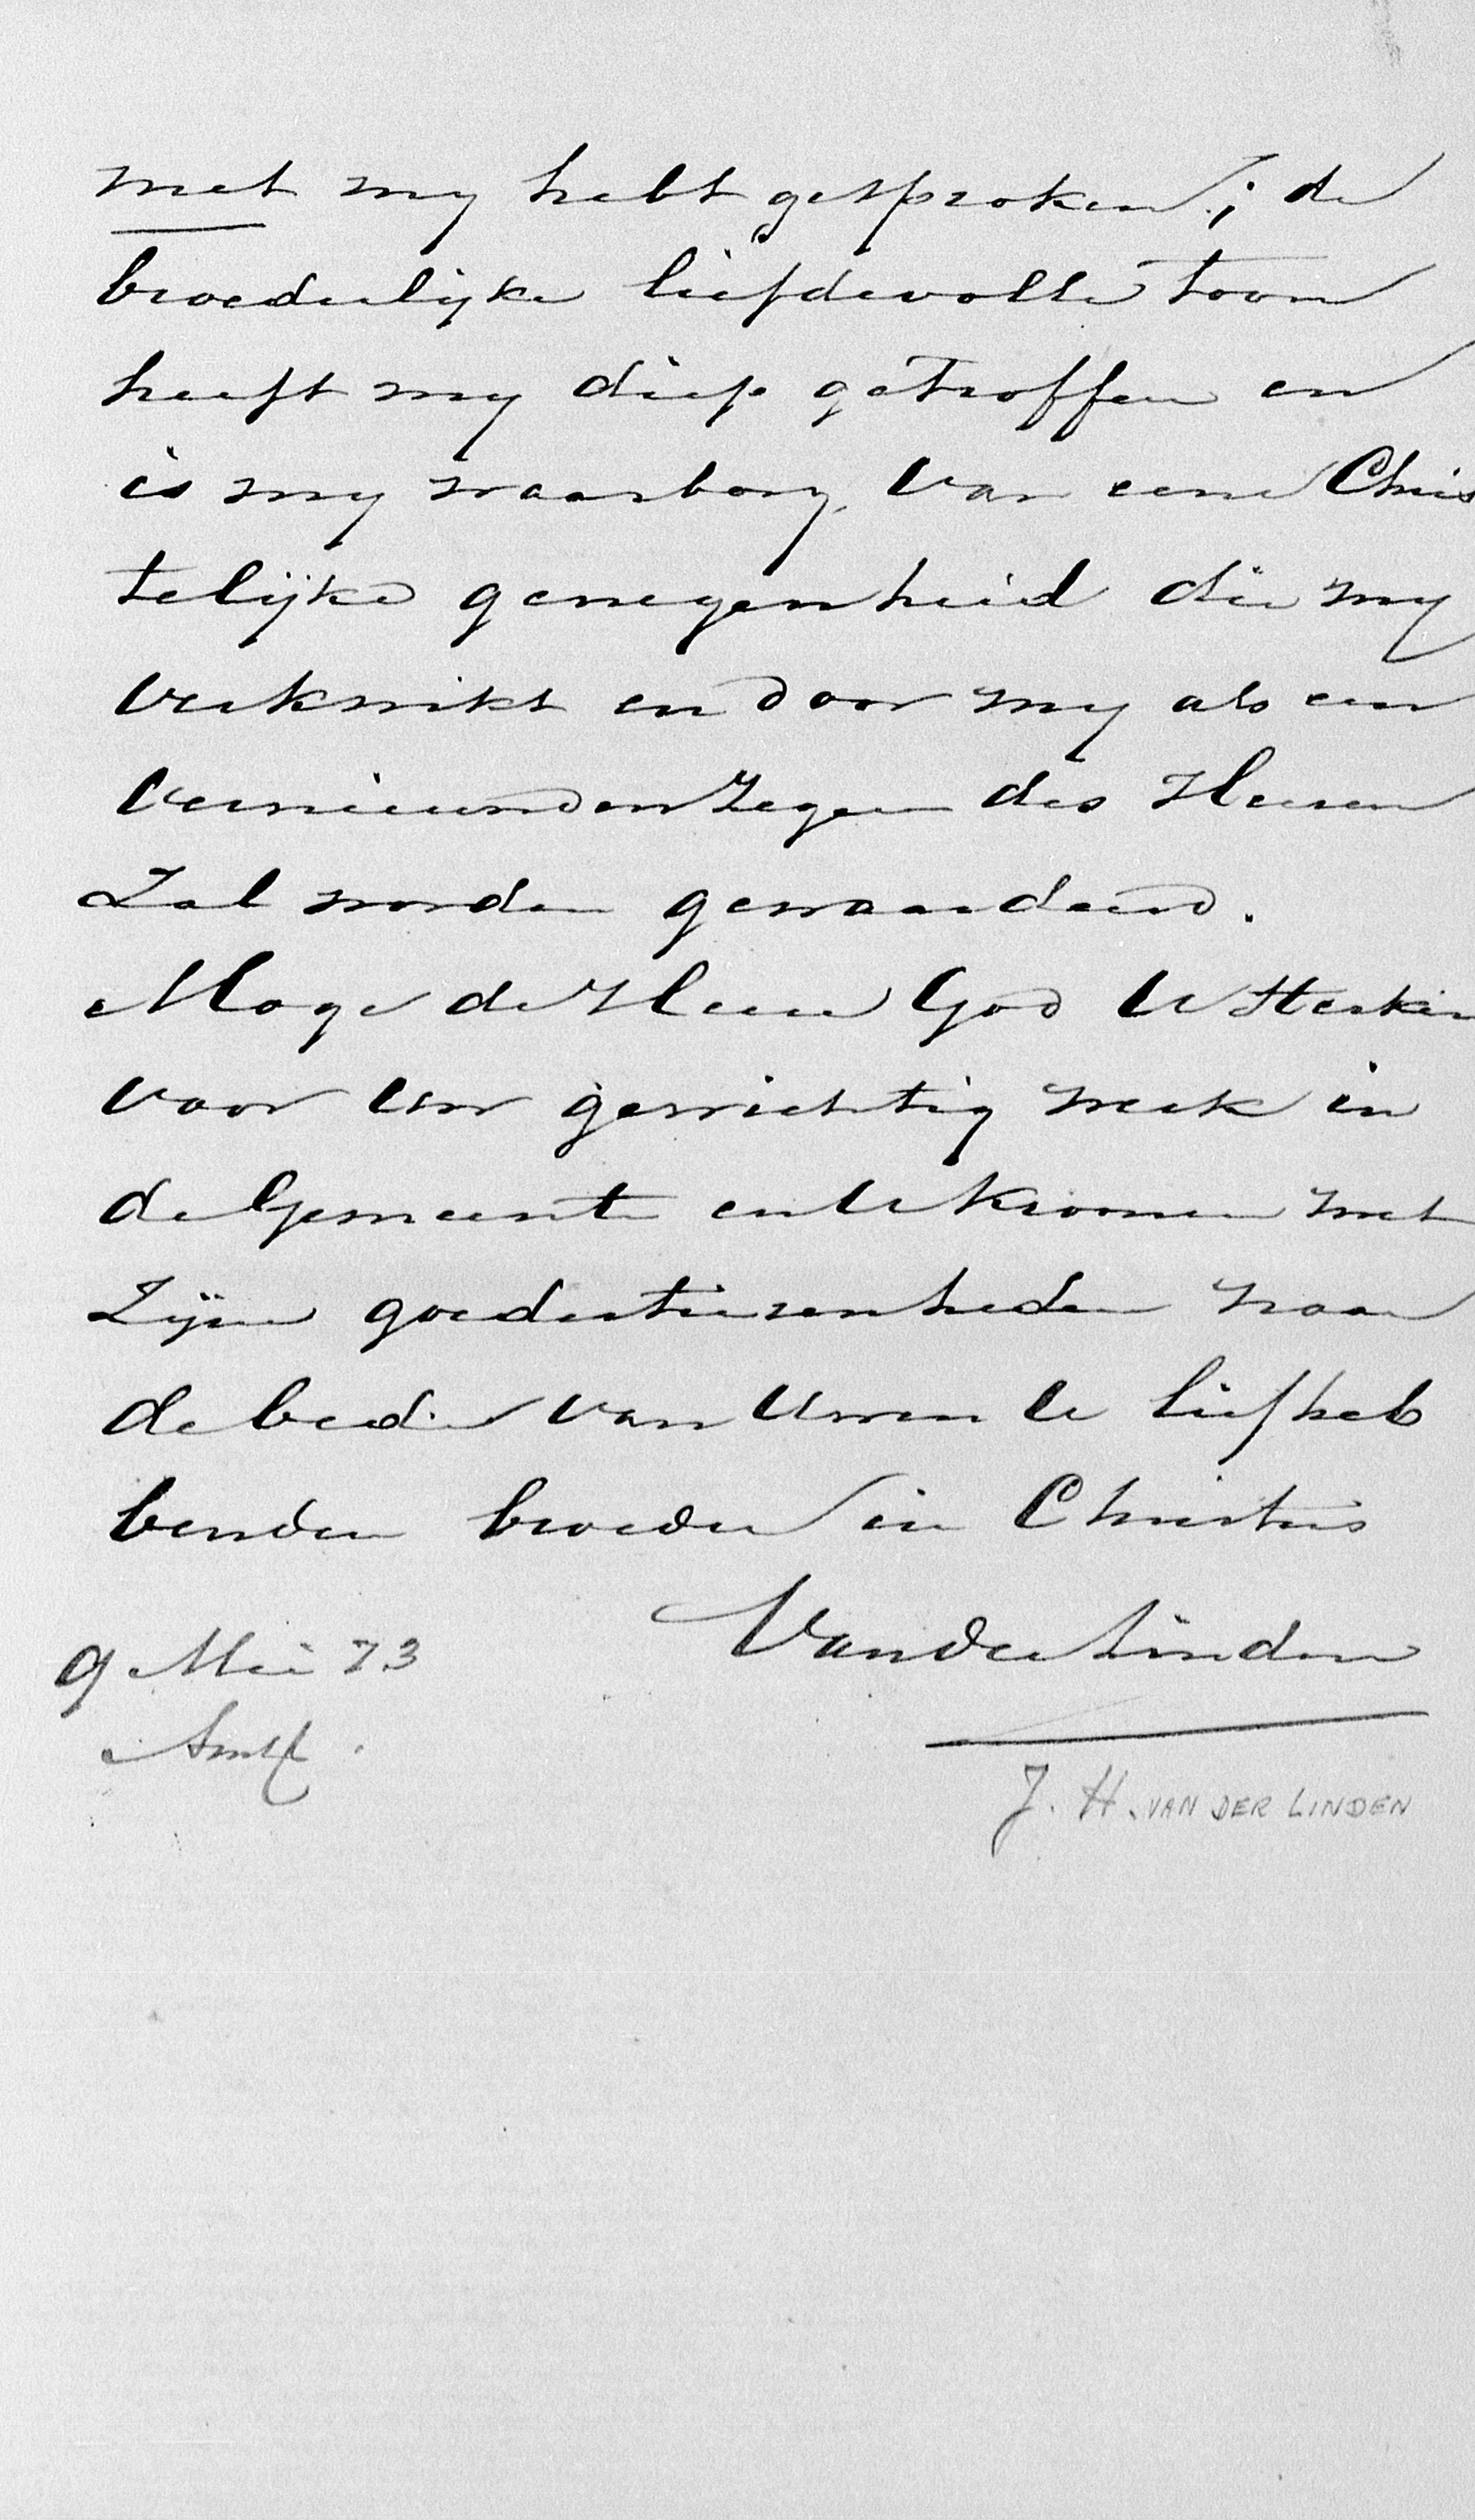 met my hebt gesproken; de
broederlijke liefdevolle toon
heeft my diep getroffen en
is my waarborg van eene Chris
telijke genegenheid die my
verkwikt en door my als een
vernieuwden zegen des Heeren
Zal worden gewaardeerd.
Moge de Heere God U sterken
voor Uw gewichtig werk in
de Gemeente en U kroonen met
Zijne goedertierenheden naar
de bede van Uwen U liefheb
benden broeder in Christus
Van der Linden
9 Mei 73
Amst.
J. H. VAN DER LINDEN